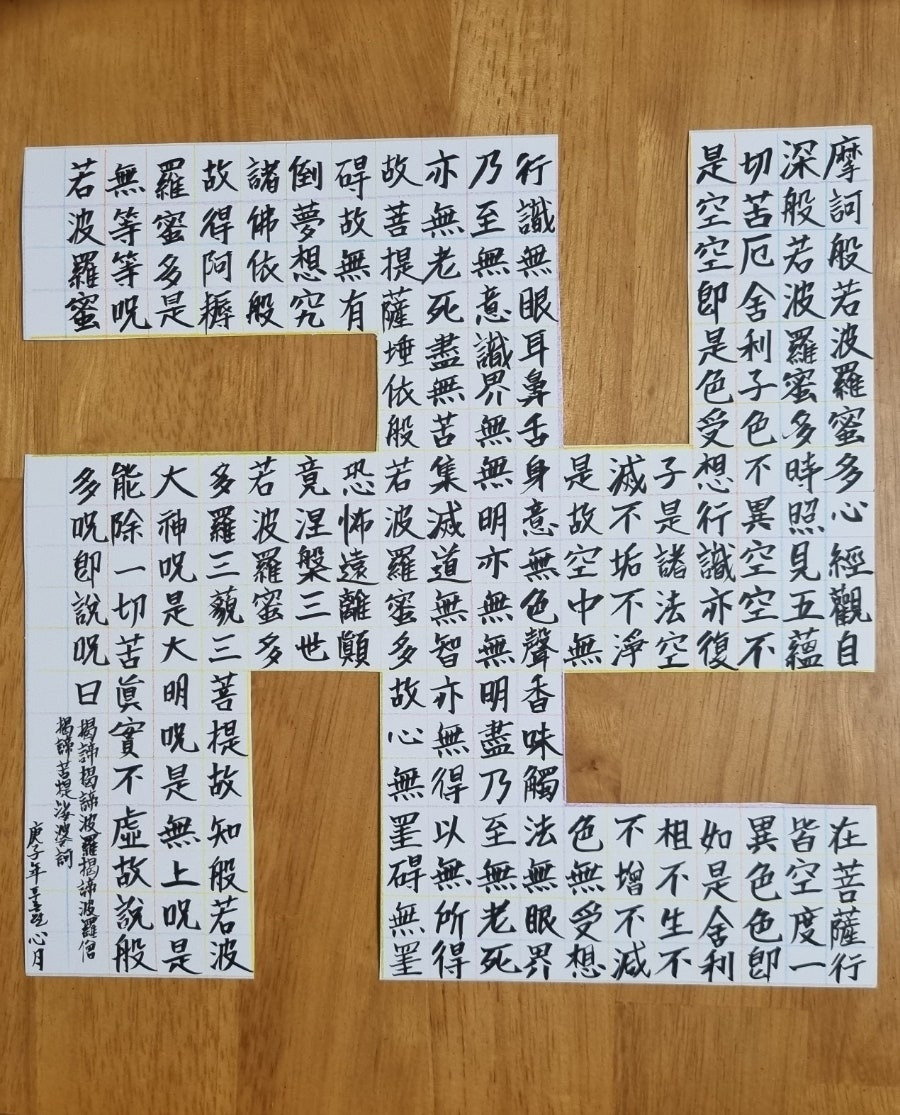 摩訶般若波羅蜜多心經觀自在菩薩行
深般若波羅蜜多時照見五蘊皆空度一
切苦厄舍利子色不異空空不異色色即
是空空即是色受想行識亦復如是舍利
子是諸法空相不生不
滅不垢不淨不增不減
是故空中無色無受想
行識無眼耳鼻舌身意無色聲香味觸法無眼界
乃至無意識界無無明亦無無明盡乃至無老死
亦無老死盡無苦集滅道無智亦無得以無所得
故菩提薩埵依般若波羅蜜多故心無罣碍無罣
碍故無有恐怖遠離顛
倒夢想究竟涅槃三世
諸佛依般若波羅蜜多
故得阿耨多羅三藐三菩提故知般若波
羅蜜多是大神呪是大明呪是無上呪是
無等等呪能除一切苦眞實不虛故說般
若波羅蜜多呪即說呪曰
揭諦揭諦波羅揭諦波羅僧
揭諦菩提娑婆訶
庚子年心月